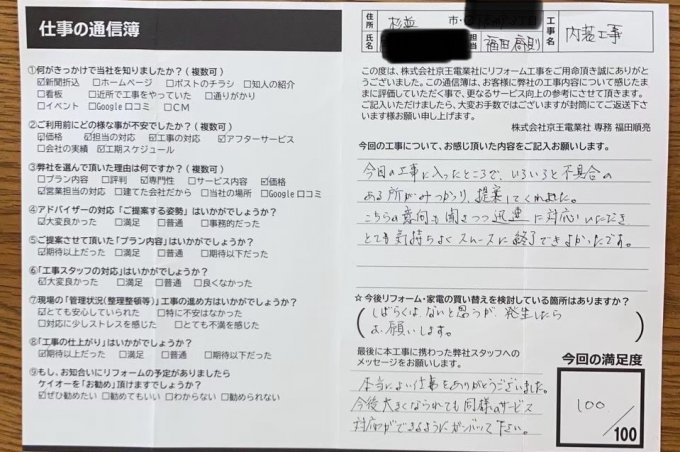 仕事の通信簿
①何がきっかけで当社を知りましたか？(複数可)
☑新聞折込 □ホームページ □ポストのチラシ □知人の紹介
□看板 □近所で工事をやっていた □通りがかり
□イベント □Google口コミ □CM
②ご利用前にどのような事が不安でしたか？(複数可)
☑価格 ☑担当の対応 ☑工事の対応 ☑アフターサービス
□会社の実績 ☑工期スケジュール
③弊社を選んで頂いた理由は何ですか？(複数可)
□プラン内容 □評判 ☑専門性 □サービス内容 ☑価格
☑営業担当の対応 □建てた会社だから □当社の場所 □Google口コミ
④アドバイザーの対応「ご提案する姿勢」はいかがでしょうか？
☑大変良かった □満足 □普通 □事務的だった
⑤ご提案させて頂いた「プラン内容」はいかがでしょうか？
☑期待以上だった □満足 □普通 □期待以下だった
⑥「工事スタッフの対応」はいかがでしょうか？
☑大変良かった □満足 □普通 □良くなかった
⑦現場の「管理状況(整理整頓等)」工事の進め方はいかがでしょうか？
☑とても安心していられた □特に不安はなかった
□対応に少しストレスを感じた □とても不満を感じた
⑧「工事の仕上がり」はいかがでしょうか？
☑期待以上だった □満足 □普通 □期待以下だった
⑨もし、お知合いにリフォームの予定がありましたら
ケイオーを「お勧め」頂けますでしょうか？
☑ぜひ勧めたい □勧めてもいい □わからない □勧められない
住所 杉並 市・
氏名 担当 福田 工事名 内装工事
この度は、株式会社京王電業社にリフォーム工事をご用命頂き誠にありがと
うございました。この通信簿は、お客様に弊社の工事内容について感じたま
まに評価していただく事で、更なるサービス向上の参考にさせて頂きます。
ご記入いただけましたら、大変お手数ではございますが封筒にてご返送下さ
います様お願い申し上げます。
株式会社京王電業社 専務 福田順亮
今回の工事について、お感じ頂いた内容をご記入お願いします。
今日の工事に入ったところで、いろいろと不具合の
ある所がみつかり、提案してくれました。
こちらの意向も聞きつつ迅速に対応いただき
とても気持ちよくスムーズに終了できよかったです。
☆今後リフォーム・家電の買い替えを検討している箇所はありますか？
しばらくは、ないと思うが、発生したら
お願いします。
最後に本工事に携わった弊社スタッフへの
メッセージをお願いします。
本当によい仕事をありがとうございました。
今後大きくなられても同様のサービス
対応ができるようにガンバッて下さい。
今回の満足度
100
/100